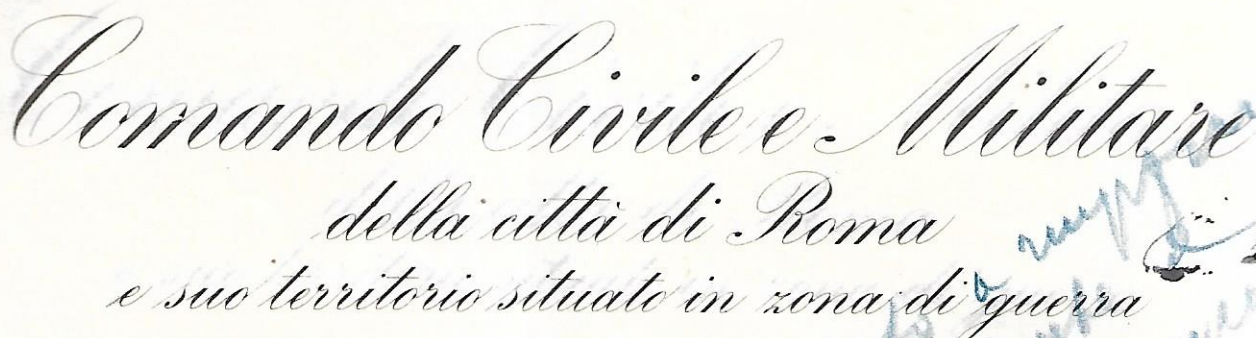 Comando Civile e Militare
della città di Roma
e suo territorio situato in zona di guerra